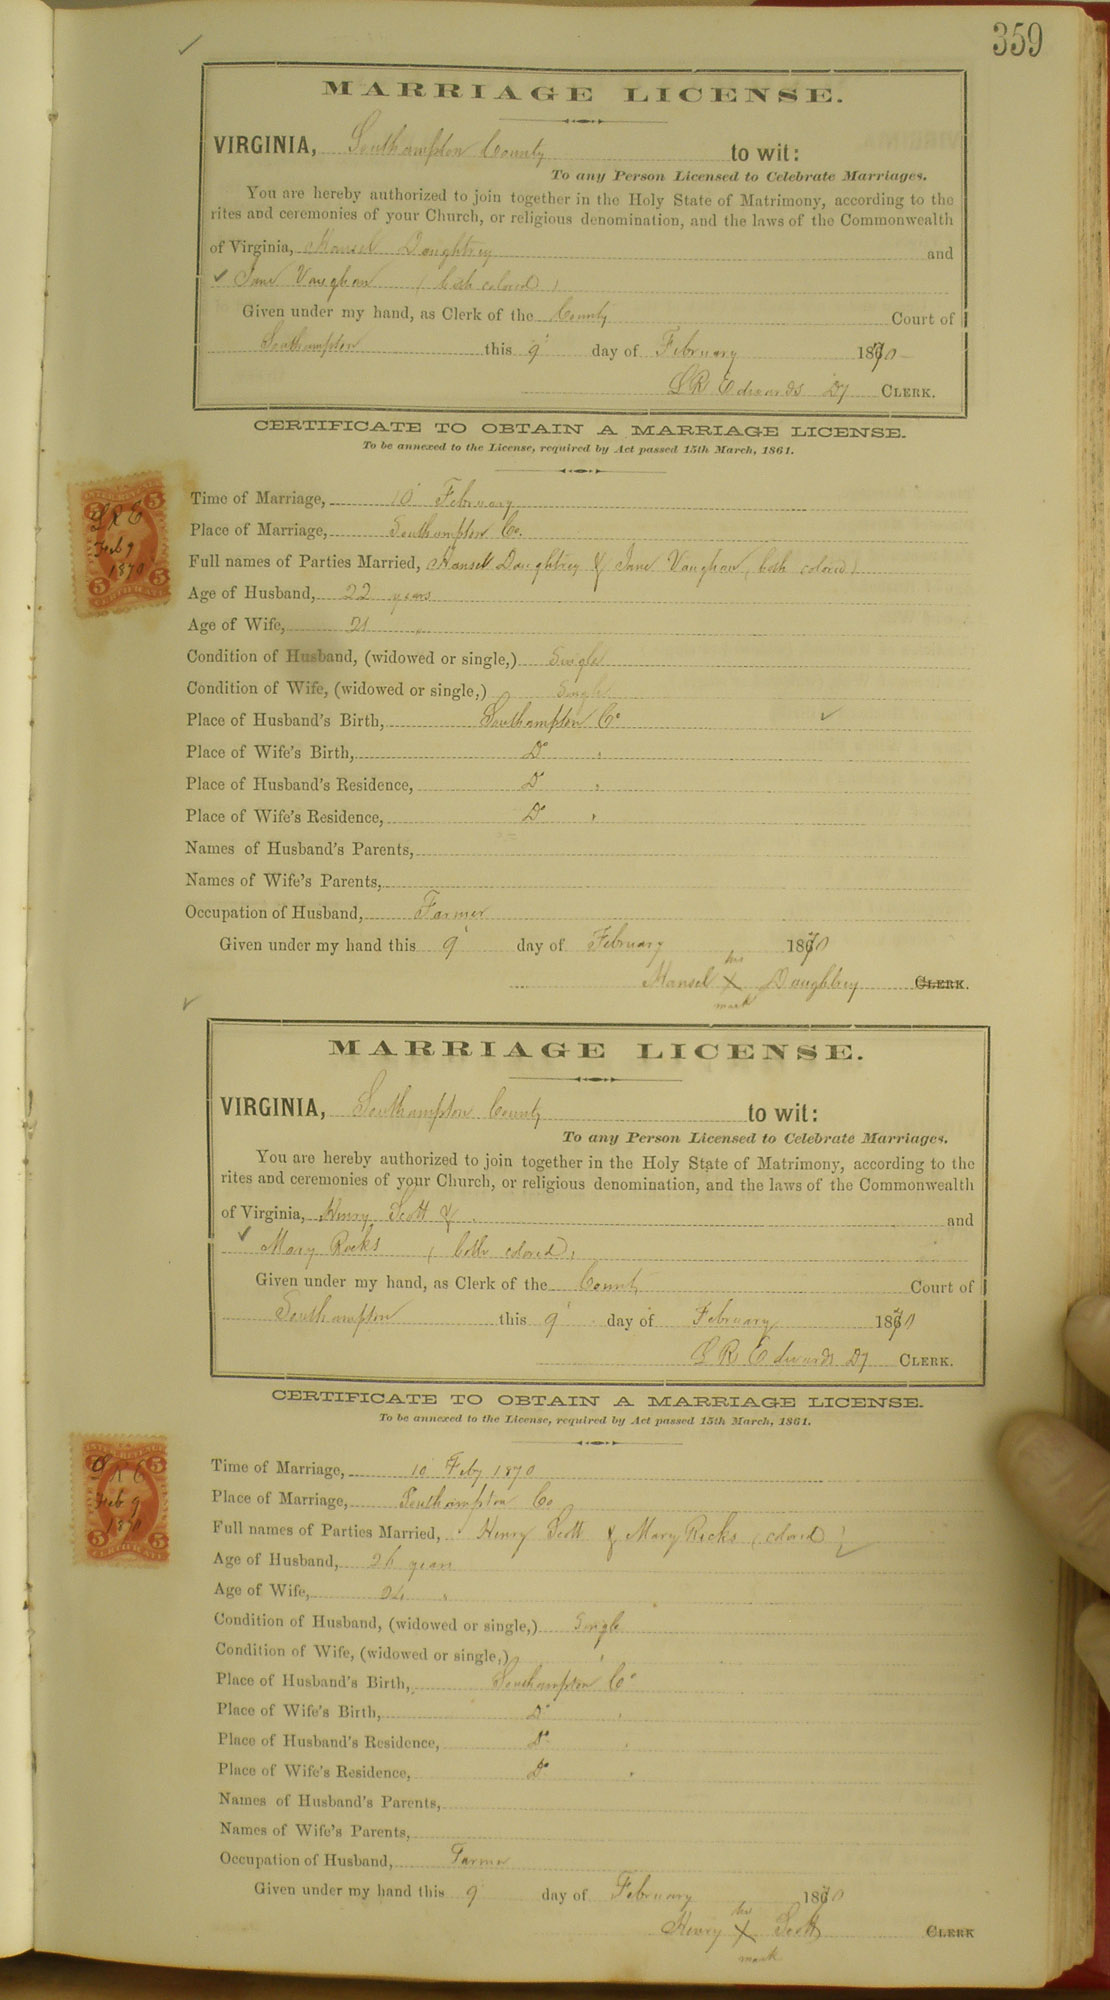 359
MARRIAGE LICENSE.
VIRGINIA, Southampton County to wit:
To any Person Licensed to Celebrate Marriages.
You are hereby authorized to join together in the Holy State of Matrimony, according to the
rites and ceremonies of your Church, or religious denomination, and the laws of the Commonwealth
of Virginia, Mansel Daughtrey and
Jane Vaughan (both colored)
Given under my hand, as Clerk of the County Court of
Southampton this 9 day of February 1870
L R Edwards Dy CLERK.
CERTIFICATE TO OBTAIN A MARRIAGE LICENSE.
To be annexed to the License, required by Act passed 15th March, 1861.
Time of Marriage, 10 February
Place of Marriage, Southampton Co.
Full names of Parties Married, Mansel Daughtrey & Jane Vaughan (both colored)
Age of Husband, 22 years
Age of Wife, 21 "
Condition of Husband, (widowed or single,) Single
Condition of Wife, (widowed or single,) Single
Place of Husband's Birth, Southampton Co
Place of Wife's Birth, Do "
Place of Husband's Residence, Do "
Place of Wife's Residence, Do "
Names of Husband's Parents,
Names of Wife's Parents,
Occupation of Husband, Farmer
Given under my hand this 9 day of February 1870
his
Mansel X Daughtrey CLERK.
mark
L R E
Feb 9
1870
5 5
5 5
CERTIFICATE
MARRIAGE LICENSE.
VIRGINIA, Southampton County to wit:
To any Person Licensed to Celebrate Marriages.
You are hereby authorized to join together in the Holy State of Matrimony, according to the
rites and ceremonies of your Church, or religious denomination, and the laws of the Commonwealth
of Virginia, Henry Scott & and
Mary Ricks (both colored)
Given under my hand, as Clerk of the County Court of
Southampton this 9 day of February 1870
L R Edwards Dy CLERK.
CERTIFICATE TO OBTAIN A MARRIAGE LICENSE.
To be annexed to the License, required by Act passed 15th March, 1861.
Time of Marriage, 10 Feby 1870
Place of Marriage, Southampton Co
Full names of Parties Married, Henry Scott & Mary Ricks (colored)
Age of Husband, 26 years
Age of Wife, 24 "
Condition of Husband, (widowed or single,) Single
Condition of Wife, (widowed or single,) "
Place of Husband's Birth, Southampton Co
Place of Wife's Birth, Do "
Place of Husband's Residence, Do "
Place of Wife's Residence, Do "
Names of Husband's Parents,
Names of Wife's Parents,
Occupation of Husband, Farmer
Given under my hand this 9 day of February 1870
his
Henry X Scott CLERK
mark
L R E
Feb 9
1870
5 5
5 5
CERTIFICATE